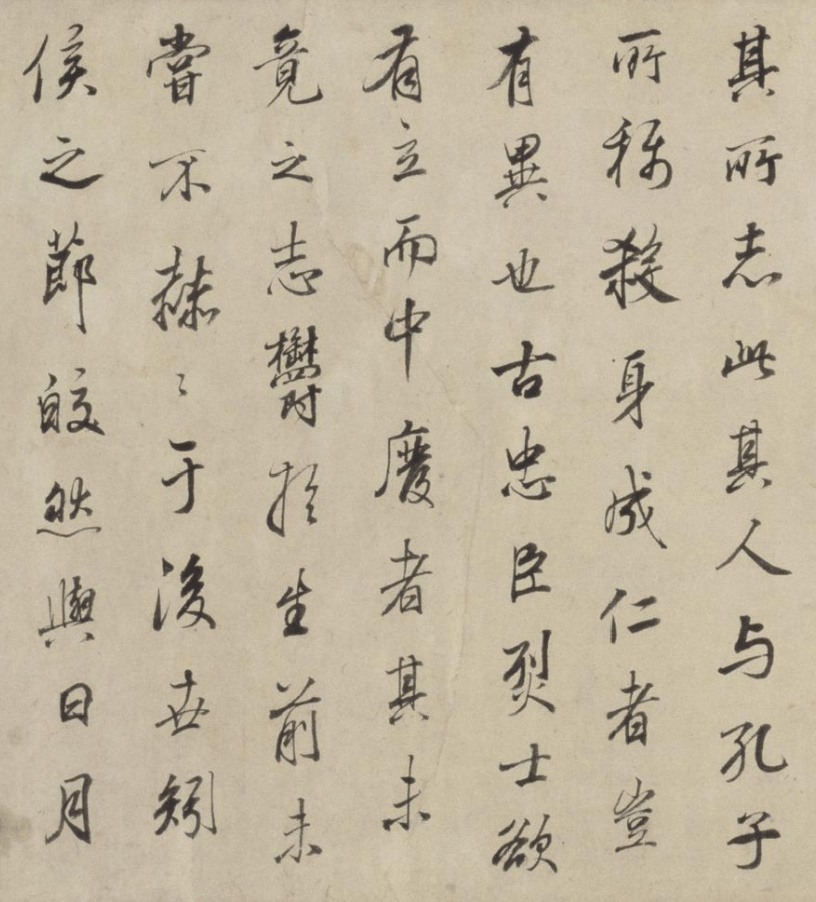 其所志此其人与孔子
所稱殺身成仁者豈
有異也古忠臣烈士欲
有立而中廢者其未
竟之志鬱於生前未
嘗不赫〻于後世矧
侯之節皎然與日月